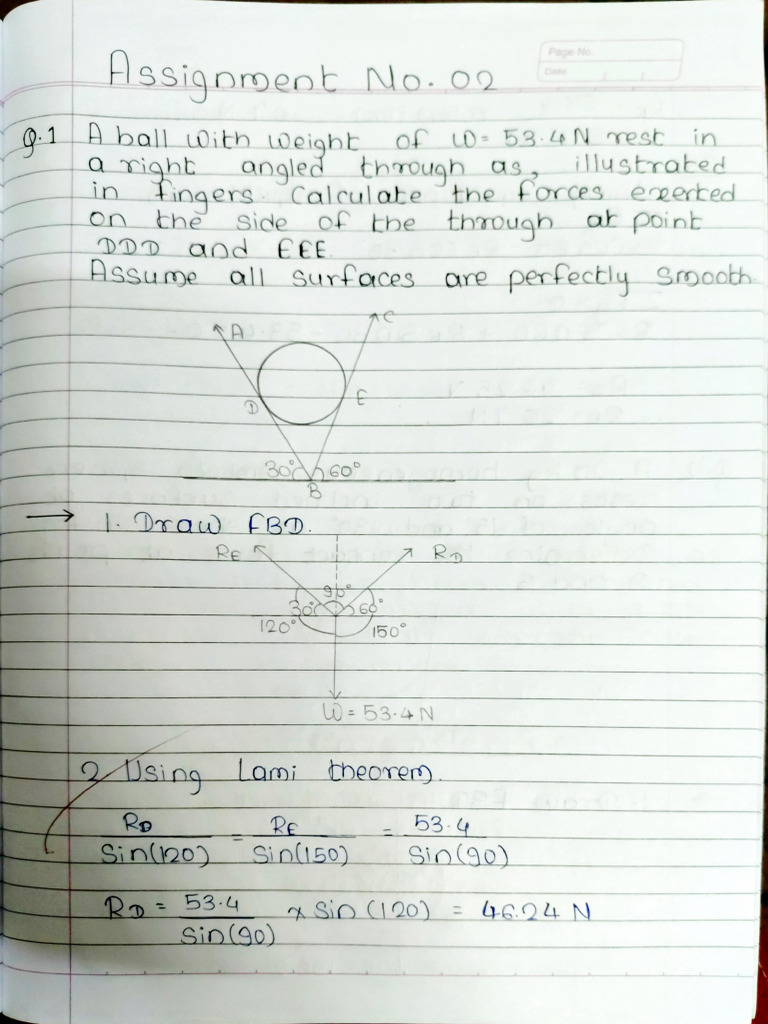 Page No.
Date
Assignment No. 02
Q.1 A ball with weight of W= 53.4 N rest in
a right angled through as, illustrated
in fingers. Calculate the forces exerted
on the side of the through at point
DDD and EEE.
Assume all surfaces are perfectly smooth.
A C
D E
30° 60°
B
→ 1. Draw FBD.
RE RD
90°
30° 60°
120° 150°
W = 53.4 N
2. Using Lami theorem.
RD / Sin(120) = RE / Sin(150) = 53.4 / Sin(90)
RD = 53.4 / Sin(90) x Sin (120) = 46.24 N